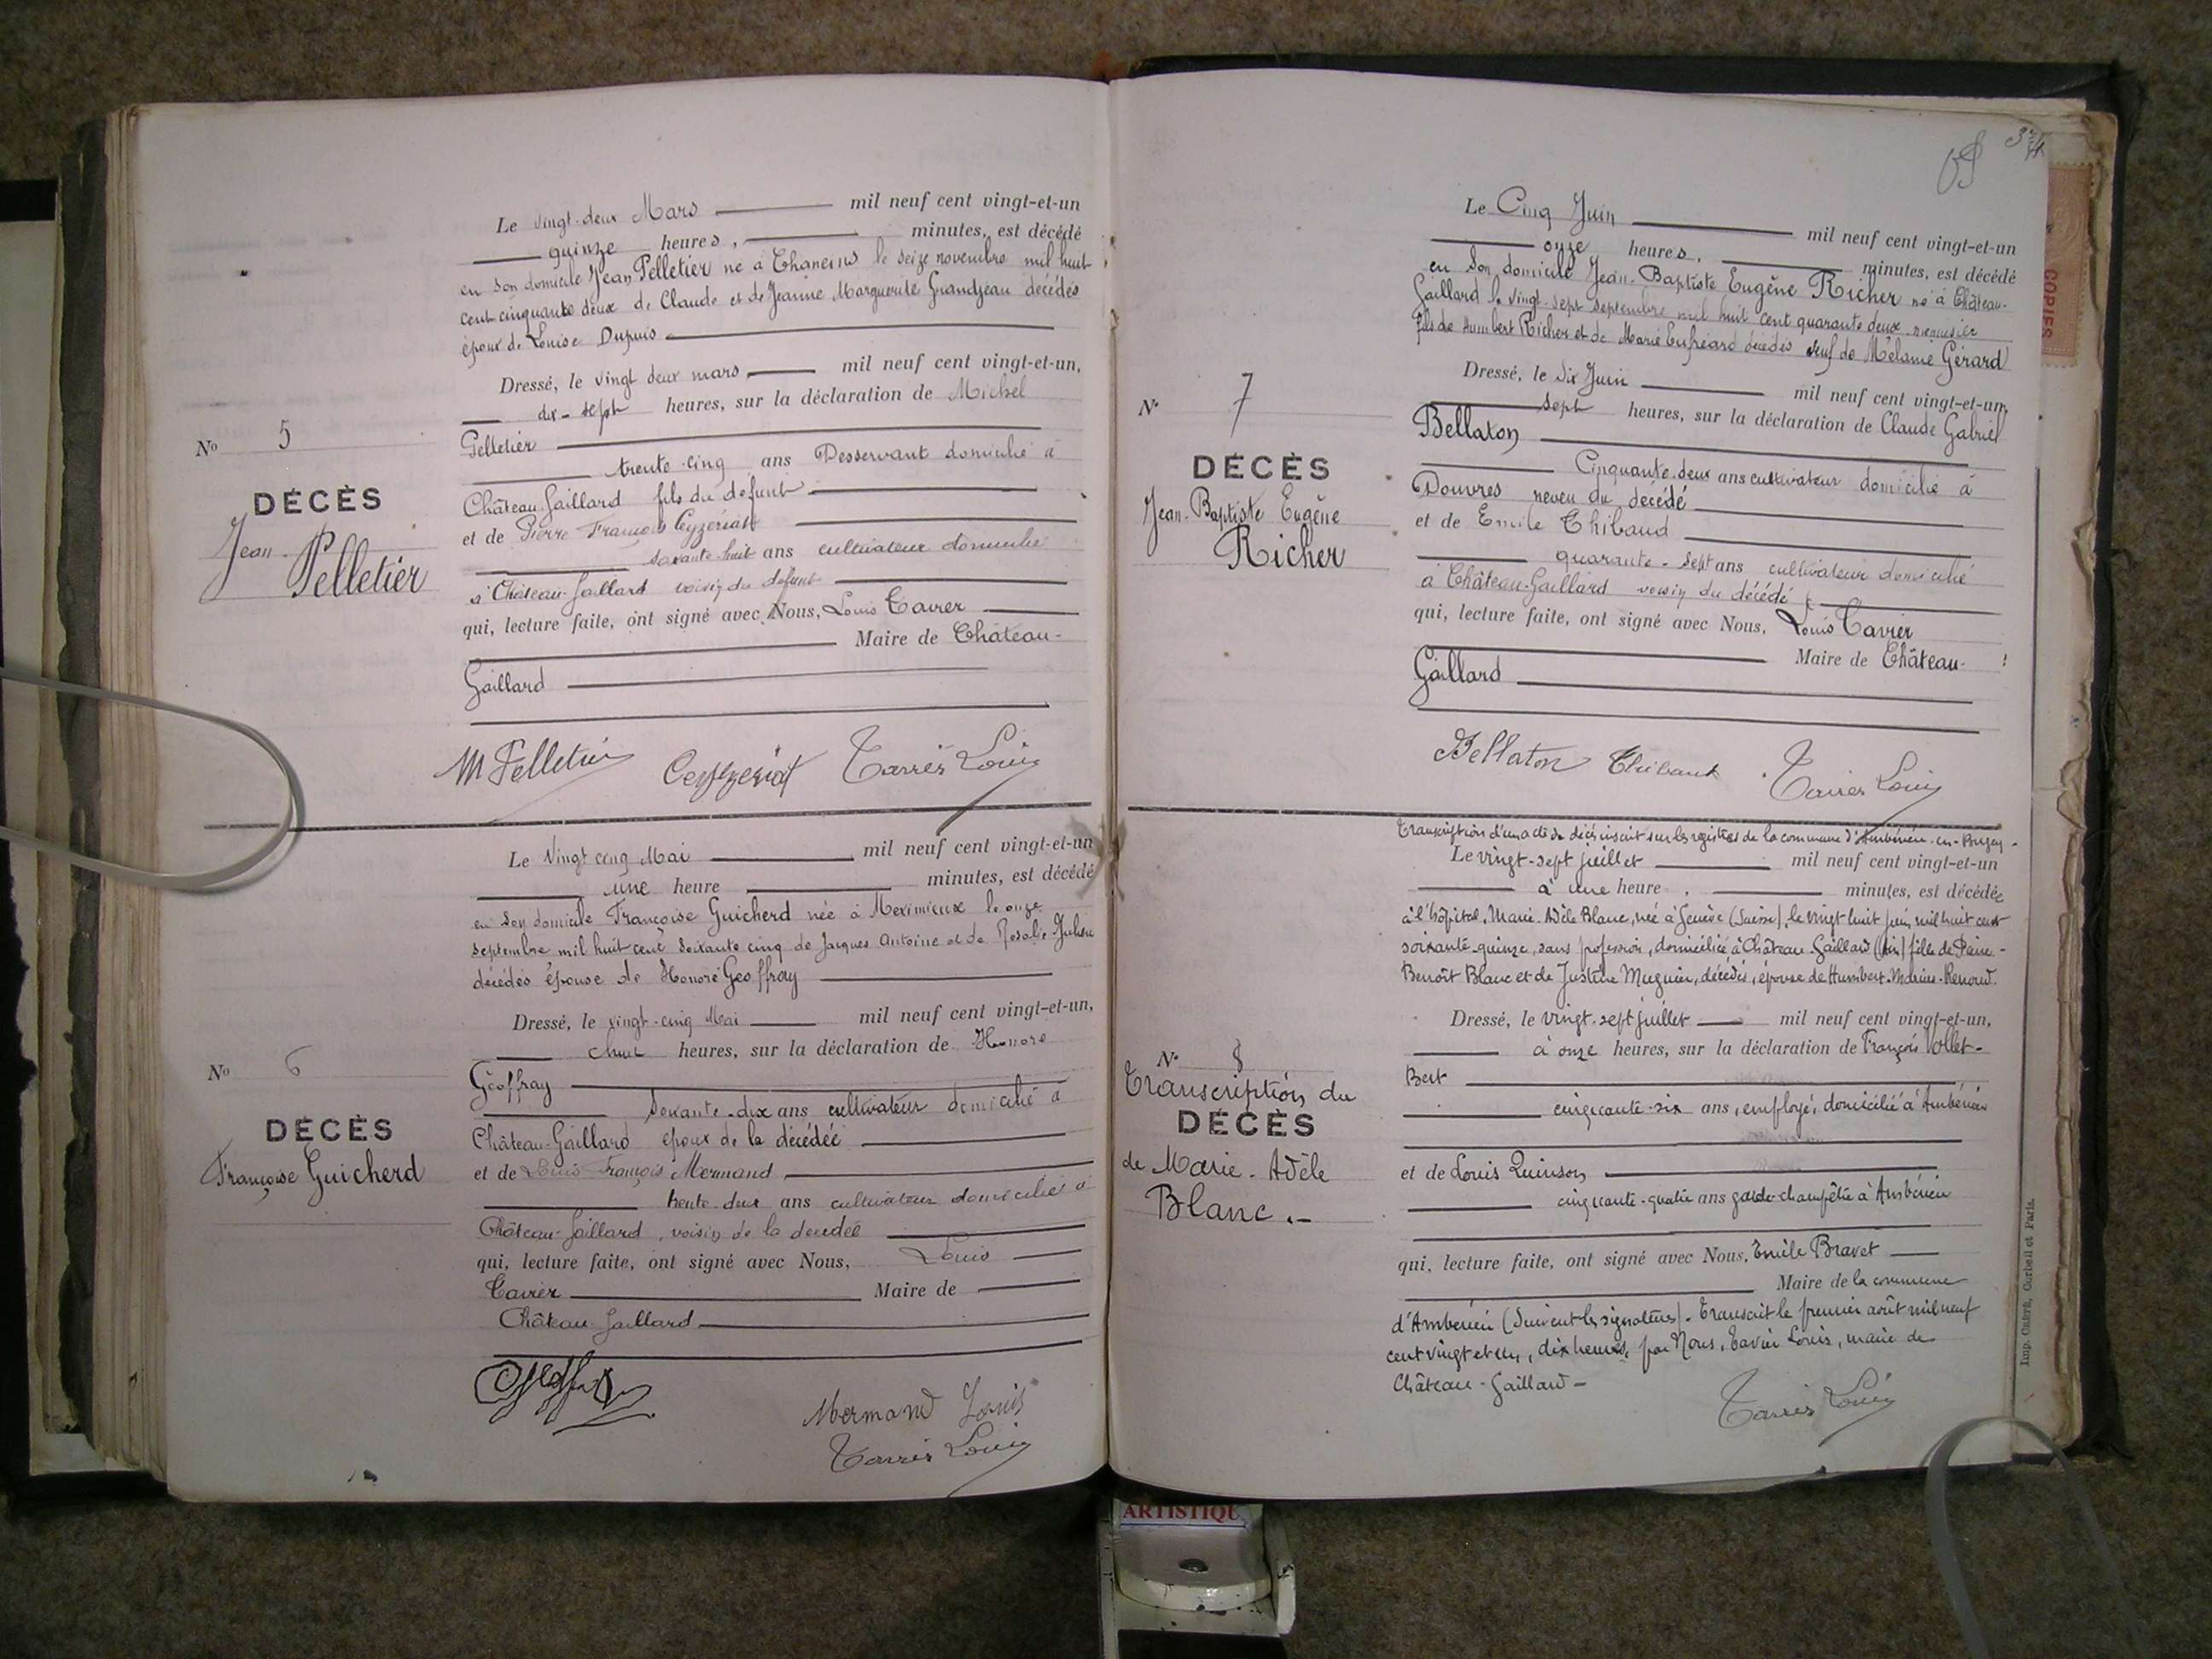 Le vingt-deux Mars mil neuf cent vingt-et-un
quinze heures, minutes, est décédé
en son domicile Jean Pelletier né à Thaneins le seize novembre mil huit
cent cinquante deux de Claude et de Jeanne Marguerite Grandjean décédés
époux de Louise Dupuis
Dressé, le vingt deux mars mil neuf cent vingt-et-un,
dix-sept heures, sur la déclaration de Michel
Pelletier
trente-cinq ans Desservant domicilié à
Château-Gaillard fils du défunt
et de Pierre François Ceyzériat
soixante-huit ans cultivateur domicilié
à Château-Gaillard voisin du défunt
qui, lecture faite, ont signé avec Nous, Louis Tavier
Maire de Château-
Gaillard
No 5
DÉCÈS
Jean
Pelletier
M Pelletier Ceyzeriat Tavier Louis
Le Vingt cinq Mai mil neuf cent vingt-et-un
une heure minutes, est décédé
en son domicile Françoise Guicherd née à Meximieux le onze
septembre mil huit cent soixante cinq de Jacques Antoine et de Rosalie
décédés épouse de Honoré Geoffray
Dressé, le vingt-cinq Mai mil neuf cent vingt-et-un,
heures, sur la déclaration de Honoré
Geoffray
soixante-dix ans cultivateur domicilié à
Château-Gaillard époux de la décédée
et de Louis François Mermand
trente-deux ans cultivateur domicilié à
Château-Gaillard, voisin de la décédée
qui, lecture faite, ont signé avec Nous, Louis
Tavier Maire de
Château-Gaillard
No 6
DÉCÈS
Françoise Guicherd
Mermand Louis
Tavier Louis
Le Cinq Juin mil neuf cent vingt-et-un
onze heures, minutes, est décédé
en son domicile Jean-Baptiste Eugène Richer né à Château-
Gaillard le vingt-sept septembre mil huit cent quarante deux menuisier
fils de Humbert Richer et de Marie décédés veuf de Mélanie Gérard
Dressé, le Six Juin mil neuf cent vingt-et-un,
sept heures, sur la déclaration de Claude Gabriel
Bellaton
Cinquante-deux ans cultivateur domicilié à
Douvres neveu du décédé
et de Emile Thibaud
quarante-sept ans cultivateur domicilié
à Château-Gaillard voisin du décédé
qui, lecture faite, ont signé avec Nous, Louis Tavier
Maire de Château-
Gaillard
No 7
DÉCÈS
Jean-Baptiste Eugène
Richer
Bellaton Thibaud Tavier Louis
Transcription d'un acte de décès inscrit sur les registres de la commune d'Ambérieu-en-Bugey-
Le vingt-sept juillet mil neuf cent vingt-et-un
à une heure, minutes, est décédée
à l'hôpital, Marie-Adèle Blanc, née à Genève (Suisse), le vingt huit juin mil huit cent
soixante-quinze, sans profession, domiciliée à Château-Gaillard (Ain) fille de Pierre-
Benoît Blanc et de Justine Muguier, décédés, épouse de Humbert-Marius-Renoud.
Dressé, le vingt-sept juillet mil neuf cent vingt-et-un,
à onze heures, sur la déclaration de François Vollet-
Bert
cinquante-six ans, employé, domicilié à Ambérieu
et de Louis Quinson
cinquante-quatre ans garde-champêtre à Ambérieu
qui, lecture faite, ont signé avec Nous, Emile Bravet
Maire de la commune
d'Ambérieu (Suivent les signatures). Transcrit le premier août mil neuf
cent vingt et un, dix heures, par Nous, Tavier Louis, maire de
Château-Gaillard-
No 8
Transcription du
DÉCÈS
de Marie-Adèle
Blanc.-
Tavier Louis
COPIES
ARTISTIQU